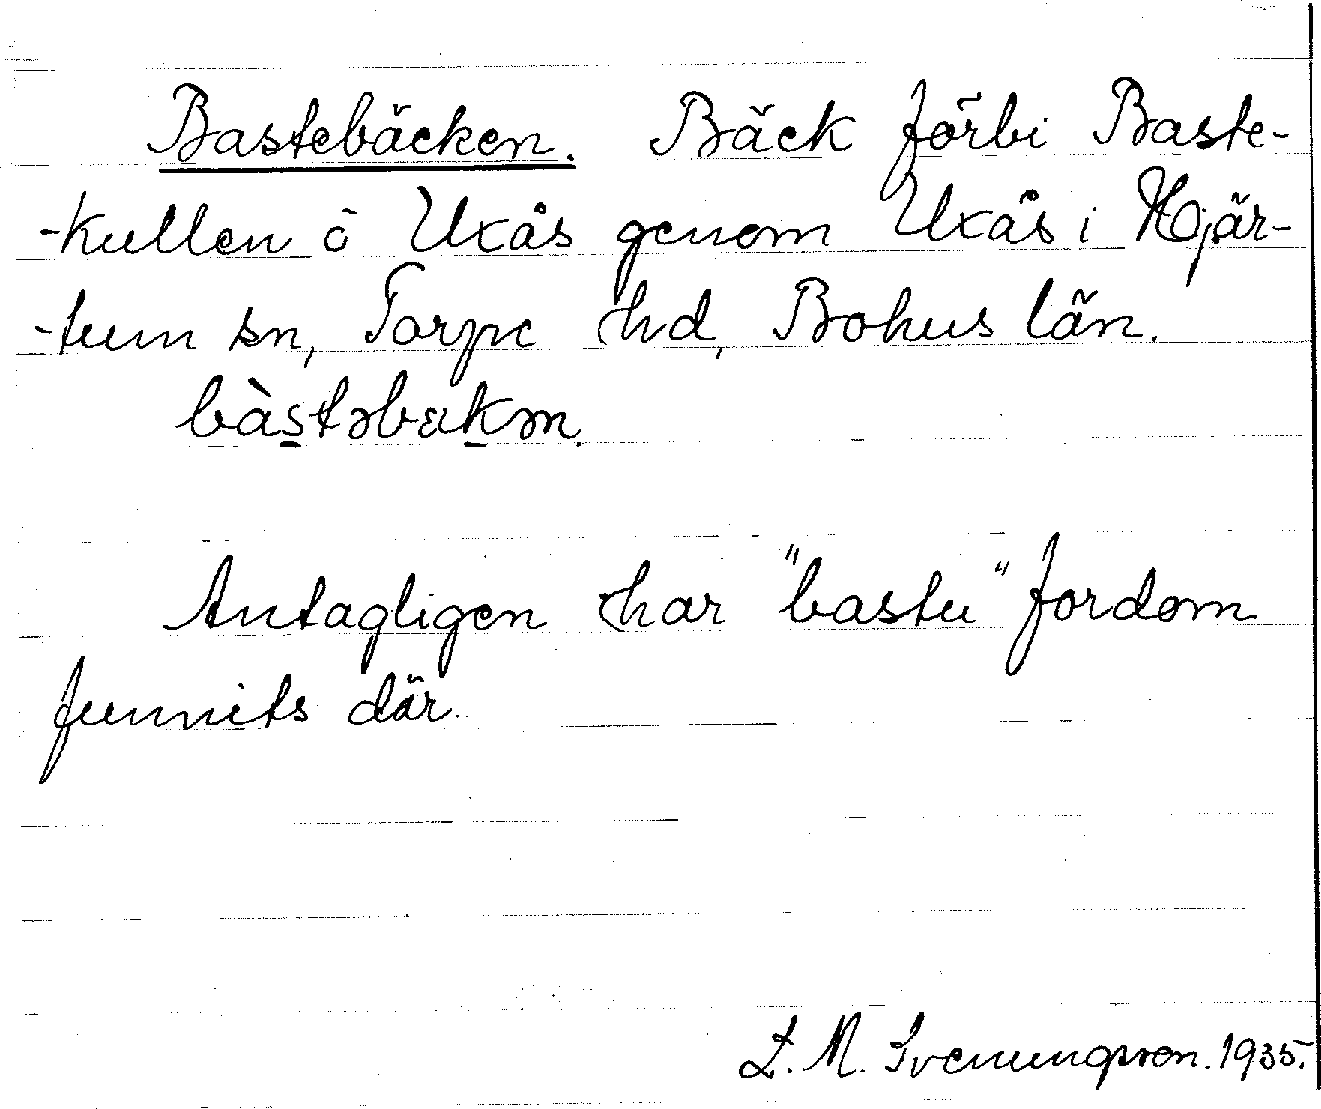 Bastebäcken. Bäck förbi Baste-
-kullen ö Uxås genom Uxås i Hjär-
-tum sn, Torpe hd, Bohus län.
bàstəbækən.
Antagligen har "bastu" fordom
funnits där.
L. M. Svenungsson. 1935.